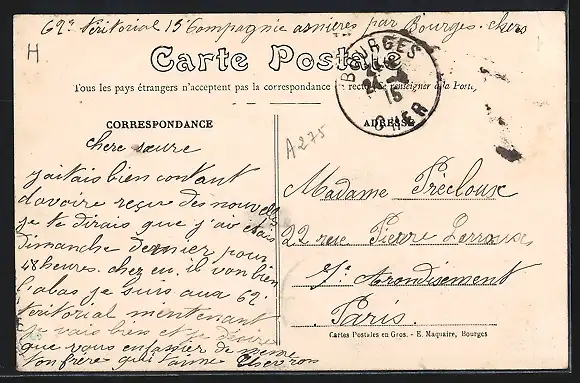 62e téritorial 15e Compagnie asnieres par Bourges. cher
H
Carte Postale
Tous les pays étrangers n'acceptent pas la correspondance au recto. Se renseigner à la Poste
BOURGES
15
CHER
CORRESPONDANCE
ADRESSE
A 275
chere sœure
jaitais bien contant
d'avoire reçue des nouvelle
je te dirais que j'ai etais
dimanche dernier pour
48 heures. chez eu. il von bien
l'abas je suis aux 62e
téritorial mentenant
je vais bien et je désire
que vous en
ton frère qui t'aime
Madame Précloux
22 rue Pierre Lerroux
7e Arondisement
Paris.
Cartes Postales en Gros. - E. Maquaire, Bourges